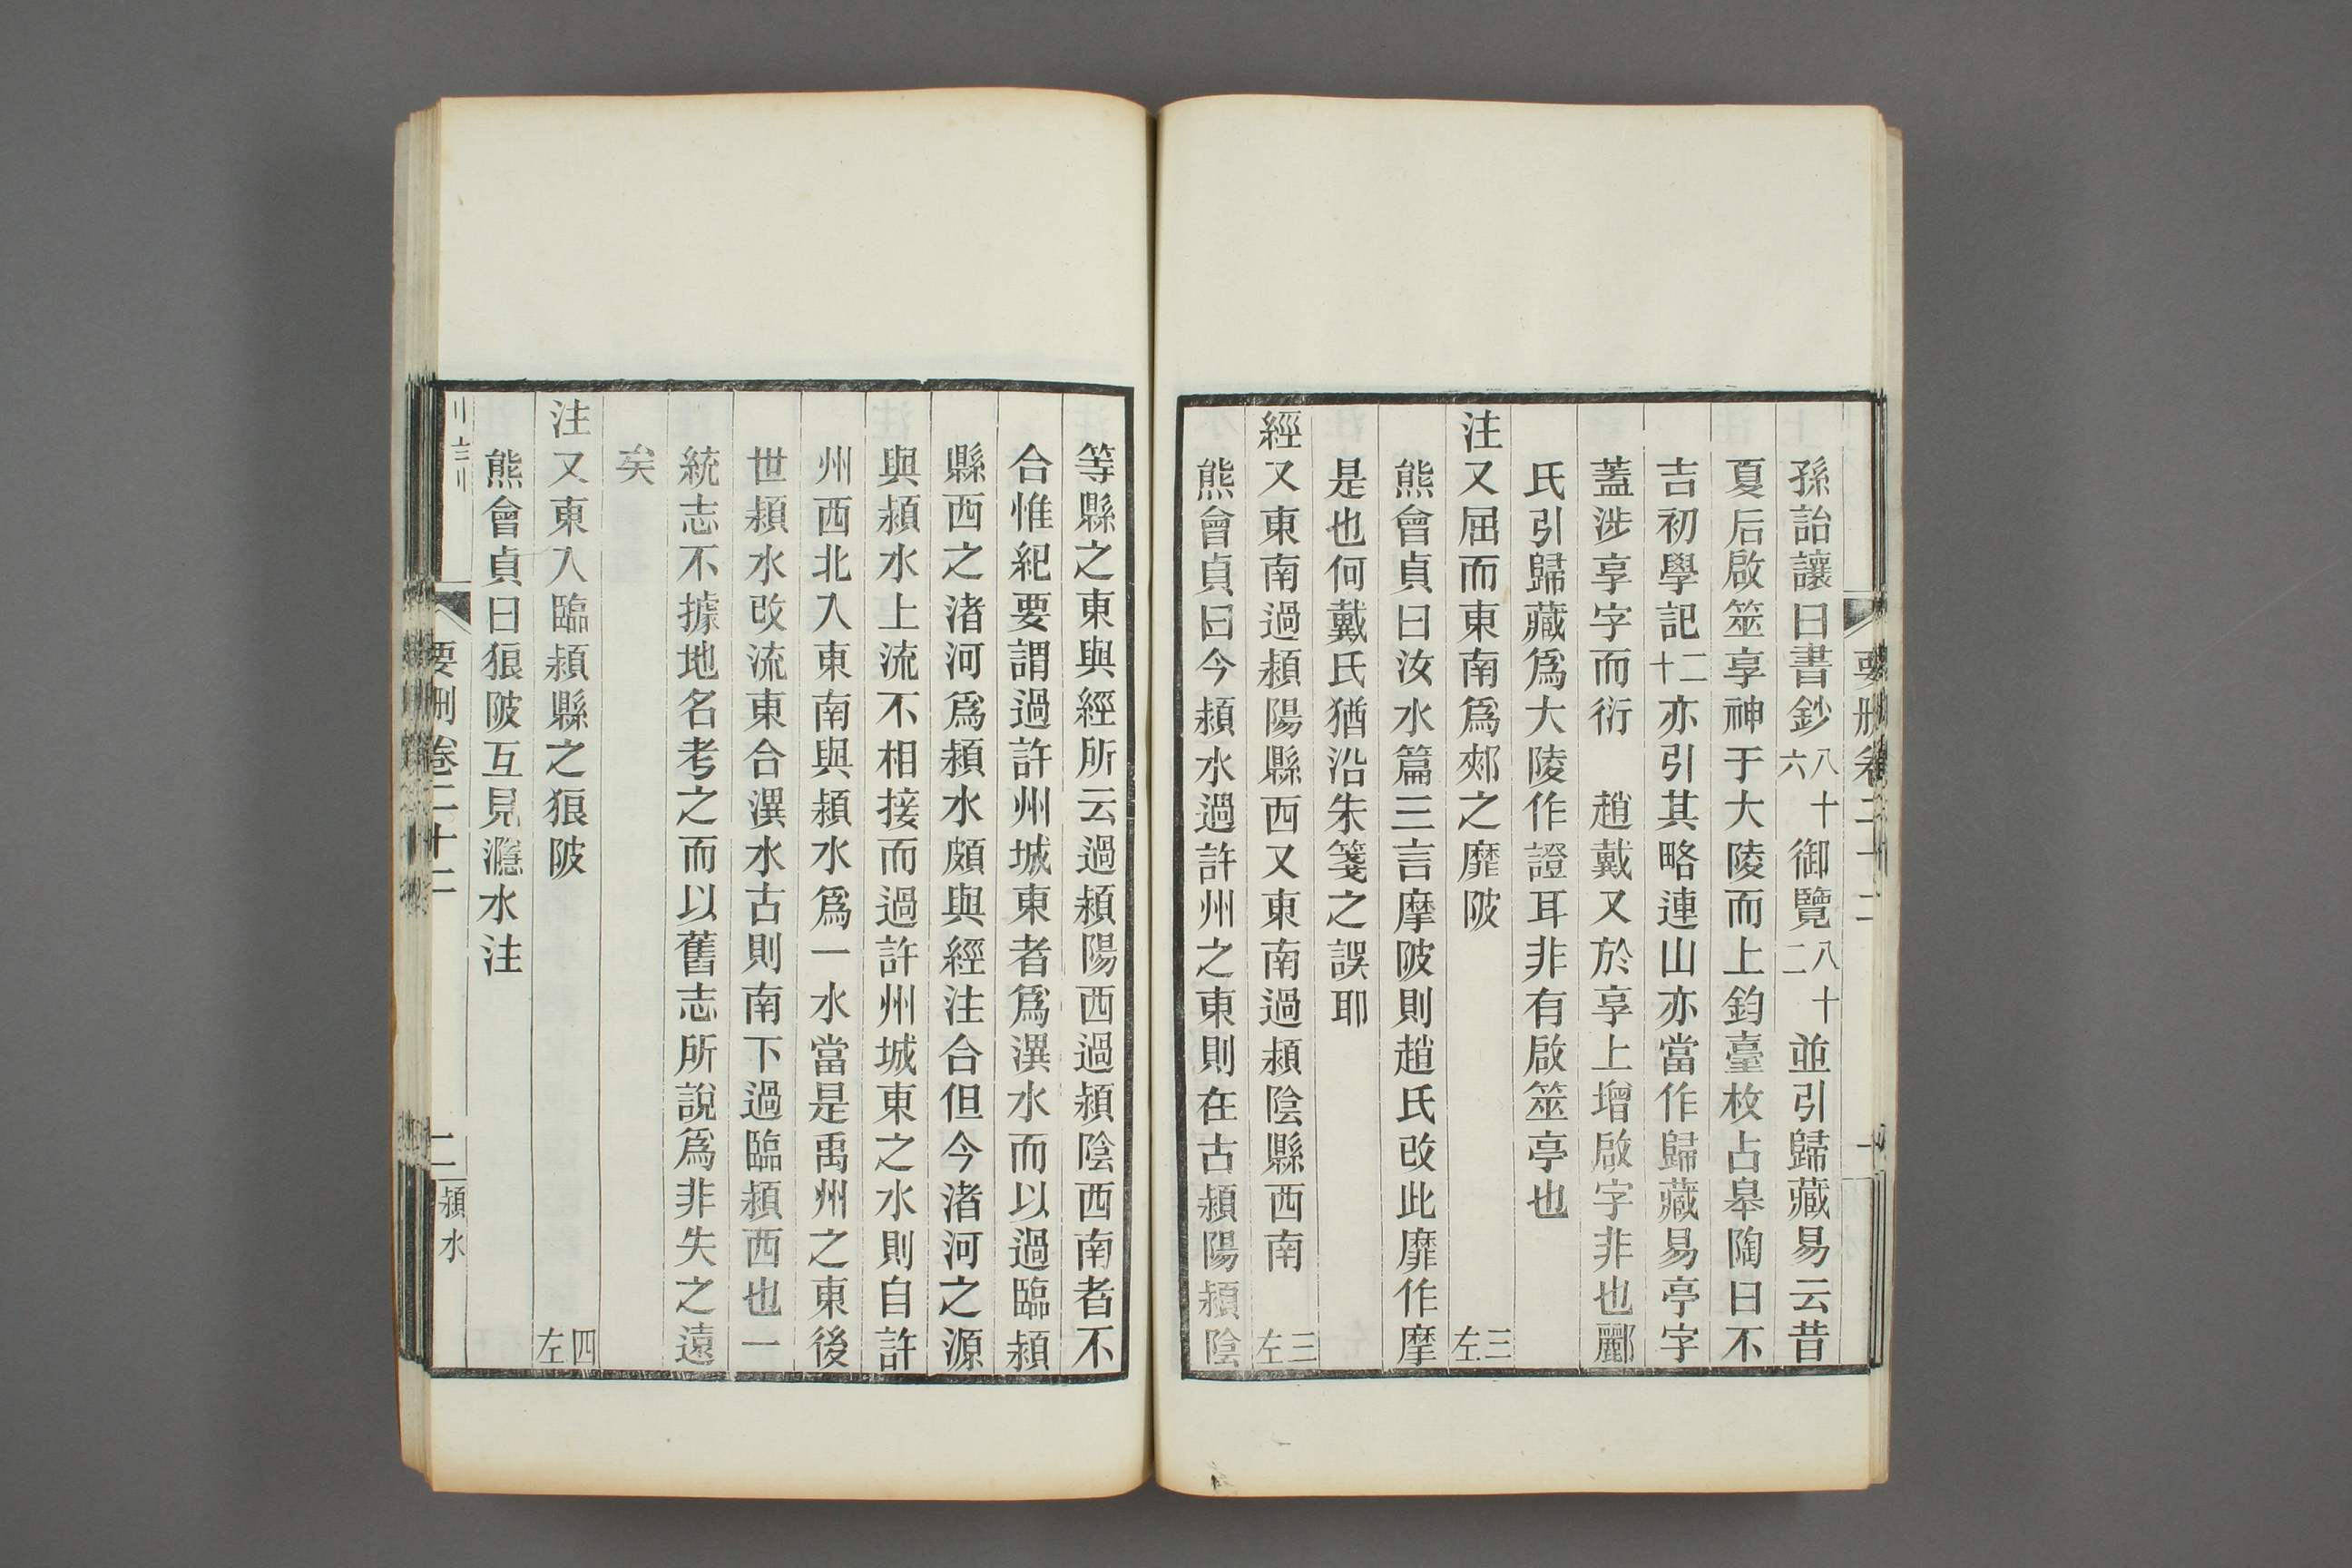 孫詒讓曰書鈔八十六御覽八十二並引歸藏易云昔
夏后啟筮享神于大陵而上鈞臺枚占皋陶曰不
吉初學記二十亦引其略連山亦當作歸藏易亭字
蓋涉享字而衍　趙戴又於享上增啟字非也酈
氏引歸藏爲大陵作證耳非有啟筮亭也
注又屈而東南爲郟之靡陂　三左
熊會貞曰汝水篇三言摩陂則趙氏改此靡作摩
是也何戴氏猶沿朱箋之誤耶
經又東南過潁陽縣西又東南過潁陰縣西南　三左
熊會貞曰今潁水過許州之東則在古潁陽潁陰
等縣之東與經所云過潁陽西過潁陰西南者不
合惟紀要謂過許州城東者爲潩水而以過臨潁
縣西之渚河爲潁水頗與經注合但今渚河之源
與潁水上流不相接而過許州城東之水則自許
州西北入東南與潁水爲一水當是禹州之東後
世潁水改流東合潩水古則南下過臨潁西也一
統志不據地名考之而以舊志所說爲非失之遠
矣
注又東入臨潁縣之狼陂　四左
熊會貞曰狼陂互見濦水注
要刪卷二十二　二　潁水